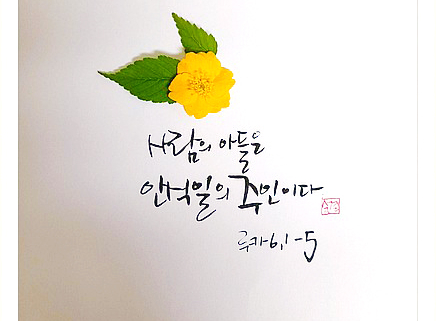 사람의 아들은
안식일의 주인이다
루카 6,1-5